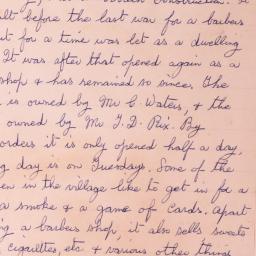 construction. It
ilt before the last war for a barbers
ut for a time was let as a dwelling
It was after that opened again as a
shop & has remained so since. The
is owned by Mr C. Waters, & the
owned by Mr J. D. Rix. By
orders it is only opened half a day,
g day is on Tuesdays. Some of the
en in the village like to get in for a
a smoke & a game of cards. Apart
ng a barbers shop, it also sells sweets
cigarettes, etc & various other things